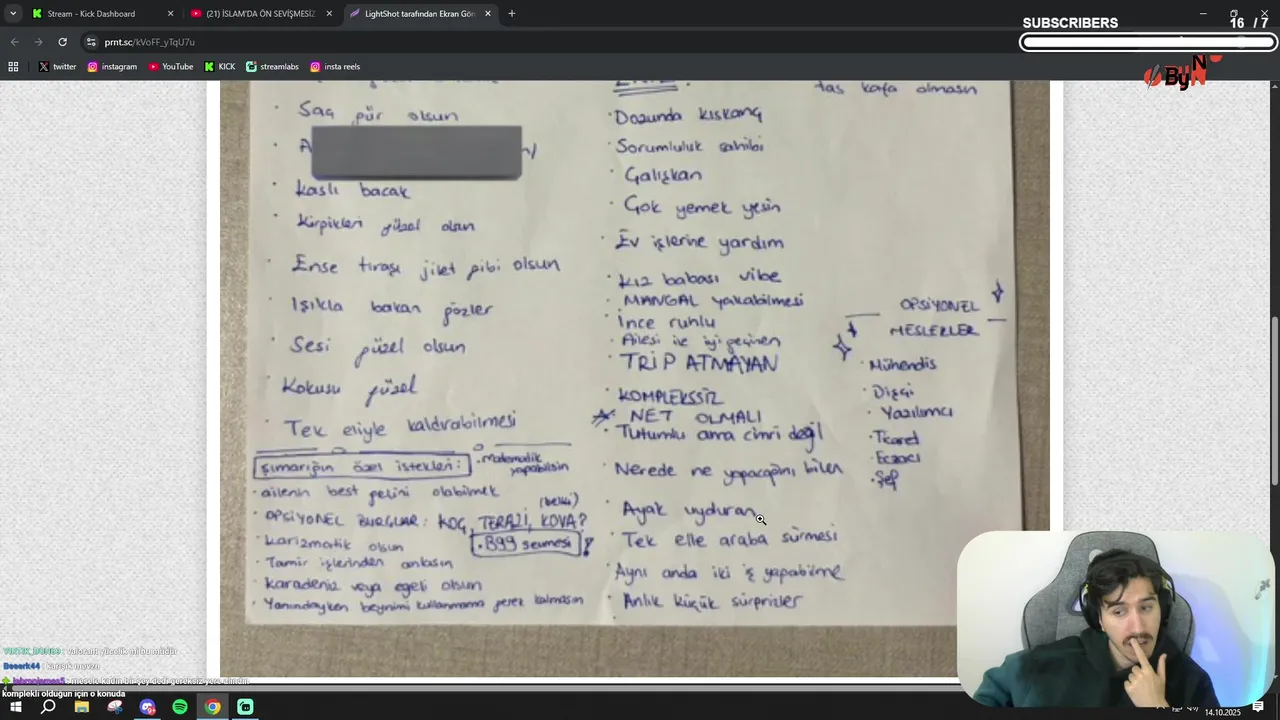 Stream - Kick Dashboard
(21) İSLAM'DA ÖN SEVİŞMESİZ
LightShot tarafından Ekran Gör
prnt.sc/kVoFF_yTqU7u
twitter
instagram
YouTube
KICK
streamlabs
insta reels
SUBSCRIBERS 16 / 7
ByN
Saç gür olsun
Kaslı bacak
Kirpikleri güzel olan
Ense tıraşı jilet gibi olsun
Işıkla bakan gözler
Sesi güzel olsun
Kokusu güzel
Tek eliyle kaldırabilmesi
Şımarığın özel istekleri:
Matematik yapabilsin
ailenin best gelini olabilmek
(belki)
OPSİYONEL BURÇLAR: KOÇ, TERAZİ, KOVA?
Karizmatik olsun
Tamir işlerinden anlasın
Karadeniz veya egeli olsun
Yanındayken beynimi kullanmama gerek kalmasın
taş kafa olmasın
Dozunda kıskanç
Sorumluluk sahibi
Çalışkan
Çok yemek yesin
Ev işlerine yardım
Kız babası vibe
MANGAL yakabilmesi
İnce ruhlu
Ailesi ile iyi geçinen
TRİP ATMAYAN
KOMPLEKSSİZ
NET OLMALI
Tutumlu ama cimri değil
Nerede ne yapacağını bilen
Ayak uyduran
Tek elle araba sürmesi
Aynı anda iki iş yapabilme
Anlık küçük sürprizler
OPSİYONEL
MESLEKLER
Mühendis
Dişçi
Yazılımcı
Ticaret
Eczacı
Şef
Beeerk44
komplekli olduğun için o konuda
14.10.2025